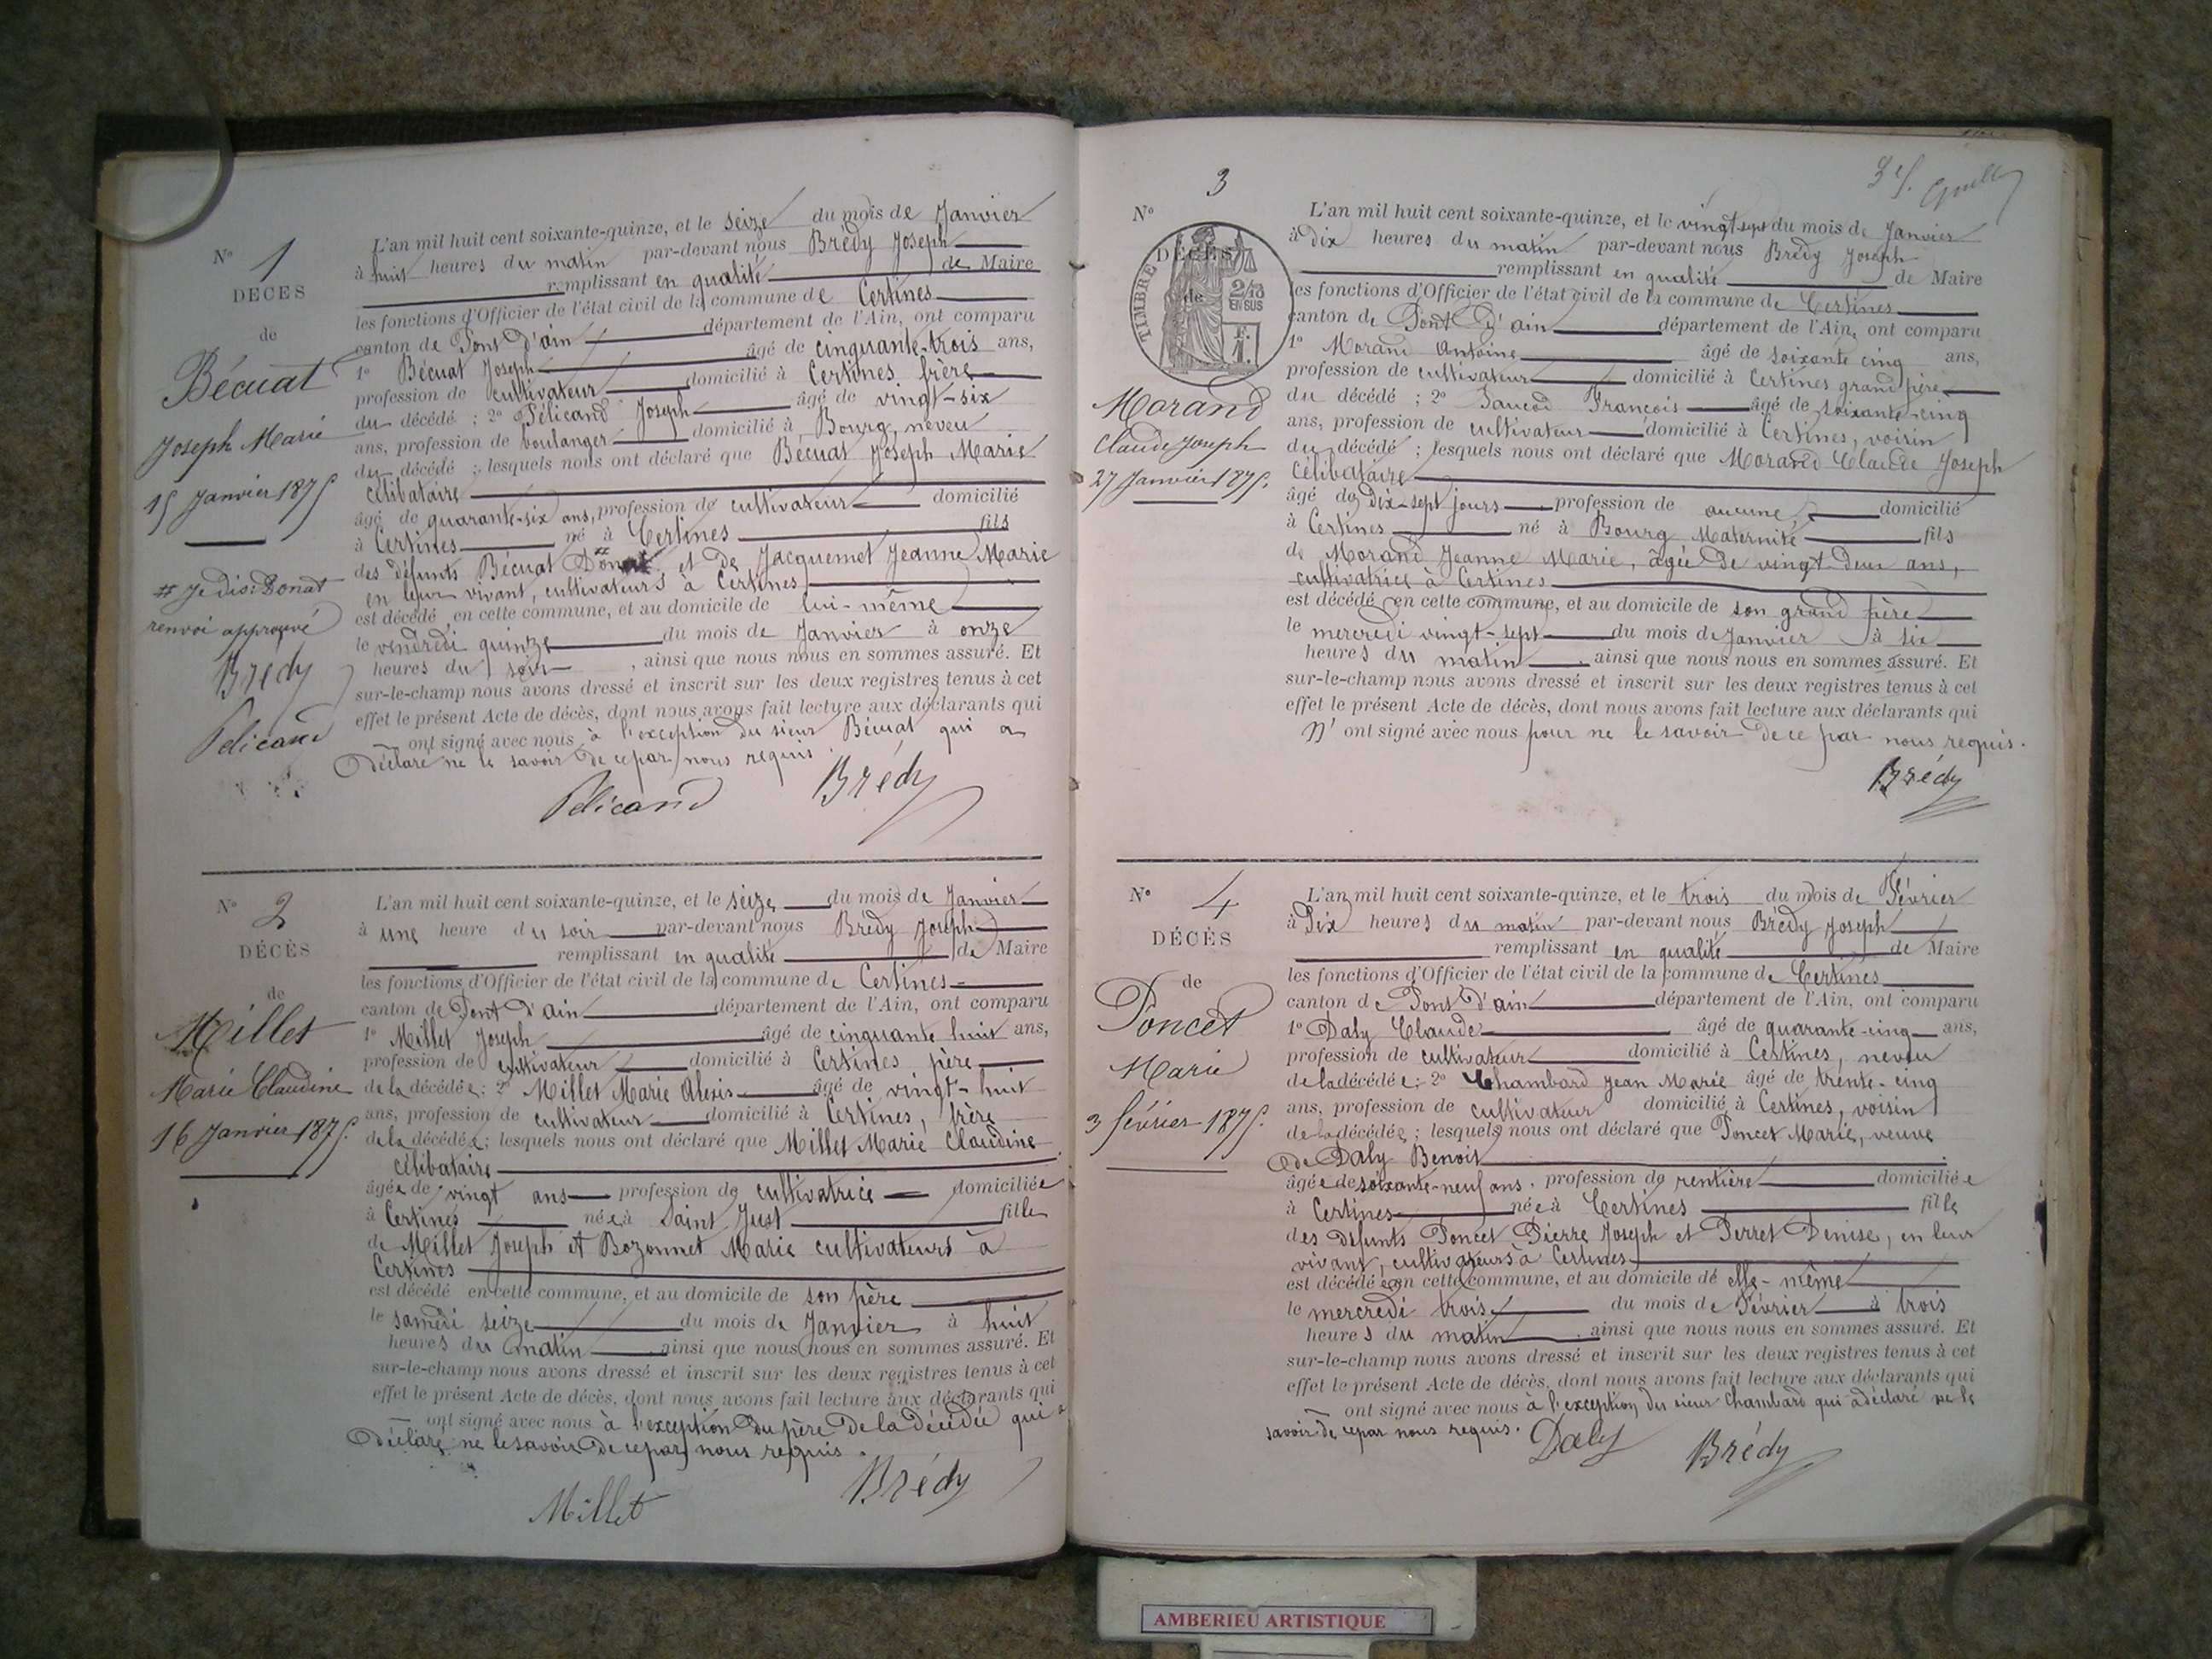 N° 1
DÉCÈS
de
Bécuat
Joseph Marie
15 Janvier 1875
# Je dis: Donat
renvoi approuvé
Brédy
Pélicand
L'an mil huit cent soixante-quinze, et le seize du mois de Janvier
à huit heures du matin par-devant nous Brédy Joseph
remplissant en qualité de Maire
les fonctions d'Officier de l'état civil de la commune de Certines
canton de Pont d'ain département de l'Ain, ont comparu
1° Bécuat Joseph âgé de cinquante-trois ans,
profession de cultivateur domicilié à Certines frère
du décédé ; 2° Pélicand Joseph âgé de vingt-six
ans, profession de boulanger domicilié à Bourg, neveu
du décédé ; lesquels nous ont déclaré que Bécuat Joseph Marie
célibataire
âgé de quarante-six ans, profession de cultivateur domicilié
à Certines né à Certines fils
des défunts Bécuat # et de Jacquemet Jeanne Marie
en leur vivant, cultivateurs à Certines
est décédé en cette commune, et au domicile de lui-même
le vendredi quinze du mois de Janvier à onze
heures du soir, ainsi que nous nous en sommes assuré. Et
sur-le-champ nous avons dressé et inscrit sur les deux registres tenus à cet
effet le présent Acte de décès, dont nous avons fait lecture aux déclarants qui
ont signé avec nous à l'exception du sieur Bécuat qui a
déclaré ne le savoir de ce par nous requis.
Pélicand Brédy
N° 2
DÉCÈS
de
Millet
Marie Claudine
16 Janvier 1875.
L'an mil huit cent soixante-quinze, et le seize du mois de Janvier
à une heure du soir par-devant nous Brédy Joseph
remplissant en qualité de Maire
les fonctions d'Officier de l'état civil de la commune de Certines
canton de Pont d'ain département de l'Ain, ont comparu
1° Millet Joseph âgé de cinquante huit ans,
profession de cultivateur domicilié à Certines père
de la décédée ; 2° Millet Marie Alexis âgé de vingt-huit
ans, profession de cultivateur domicilié à Certines, frère
de la décédée ; lesquels nous ont déclaré que Millet Marie Claudine
célibataire
âgée de vingt ans profession de cultivatrice domiciliée
à Certines née à Saint Just fille
de Millet Joseph et Bozonnet Marie cultivateurs à
Certines
est décédé en cette commune, et au domicile de son père
le samedi seize du mois de Janvier à huit
heures du matin, ainsi que nous nous en sommes assuré. Et
sur-le-champ nous avons dressé et inscrit sur les deux registres tenus à cet
effet le présent Acte de décès, dont nous avons fait lecture aux déclarants qui
ont signé avec nous à l'exception du père de la décédée qui a
déclaré ne le savoir de ce par nous requis.
Millet Brédy
3
N°
DÉCÈS
de
TIMBRE
2/10
EN SUS
Morand
Claude Joseph
27 Janvier 1875.
L'an mil huit cent soixante-quinze, et le vingt-sept du mois de Janvier
à dix heures du matin par-devant nous Brédy Joseph
remplissant en qualité de Maire
les fonctions d'Officier de l'état civil de la commune de Certines
canton de Pont d'ain département de l'Ain, ont comparu
1° Morand Antoine âgé de soixante cinq ans,
profession de cultivateur domicilié à Certines grand père
du décédé ; 2° François âgé de soixante-cinq
ans, profession de cultivateur domicilié à Certines, voisin
du décédé ; lesquels nous ont déclaré que Morand Claude Joseph
célibataire
âgé de dix-sept jours profession de aucune domicilié
à Certines né à Bourg Maternité fils
de Morand Jeanne Marie, âgée de vingt-deux ans,
cultivatrice à Certines
est décédé en cette commune, et au domicile de son grand père
le mercredi vingt-sept du mois de Janvier à six
heures du matin, ainsi que nous nous en sommes assuré. Et
sur-le-champ nous avons dressé et inscrit sur les deux registres tenus à cet
effet le présent Acte de décès, dont nous avons fait lecture aux déclarants qui
n'ont signé avec nous pour ne le savoir de ce par nous requis.
Brédy
N° 4
DÉCÈS
de
Poncet
Marie
3 février 1875.
L'an mil huit cent soixante-quinze, et le trois du mois de Février
à dix heures du matin par-devant nous Brédy Joseph
remplissant en qualité de Maire
les fonctions d'Officier de l'état civil de la commune de Certines
canton de Pont d'ain département de l'Ain, ont comparu
1° Daly Claude âgé de quarante-cinq ans,
profession de cultivateur domicilié à Certines, neveu
de la décédée ; 2° Chambard Jean Marie âgé de trente-cinq
ans, profession de cultivateur domicilié à Certines, voisin
de la décédée ; lesquels nous ont déclaré que Poncet Marie, veuve
de Daly Benoit
âgée de soixante-neuf ans. profession de rentière domiciliée
à Certines née à Certines fille
des défunts Poncet Pierre Joseph et Perret Denise, en leur
vivant, cultivateurs à Certines
est décédée en cette commune, et au domicile de elle-même
le mercredi trois du mois de Février à trois
heures du matin, ainsi que nous nous en sommes assuré. Et
sur-le-champ nous avons dressé et inscrit sur les deux registres tenus à cet
effet le présent Acte de décès, dont nous avons fait lecture aux déclarants qui
ont signé avec nous à l'exception du sieur Chambard qui a déclaré ne le
savoir de ce par nous requis. Daly Brédy
AMBERIEU ARTISTIQUE